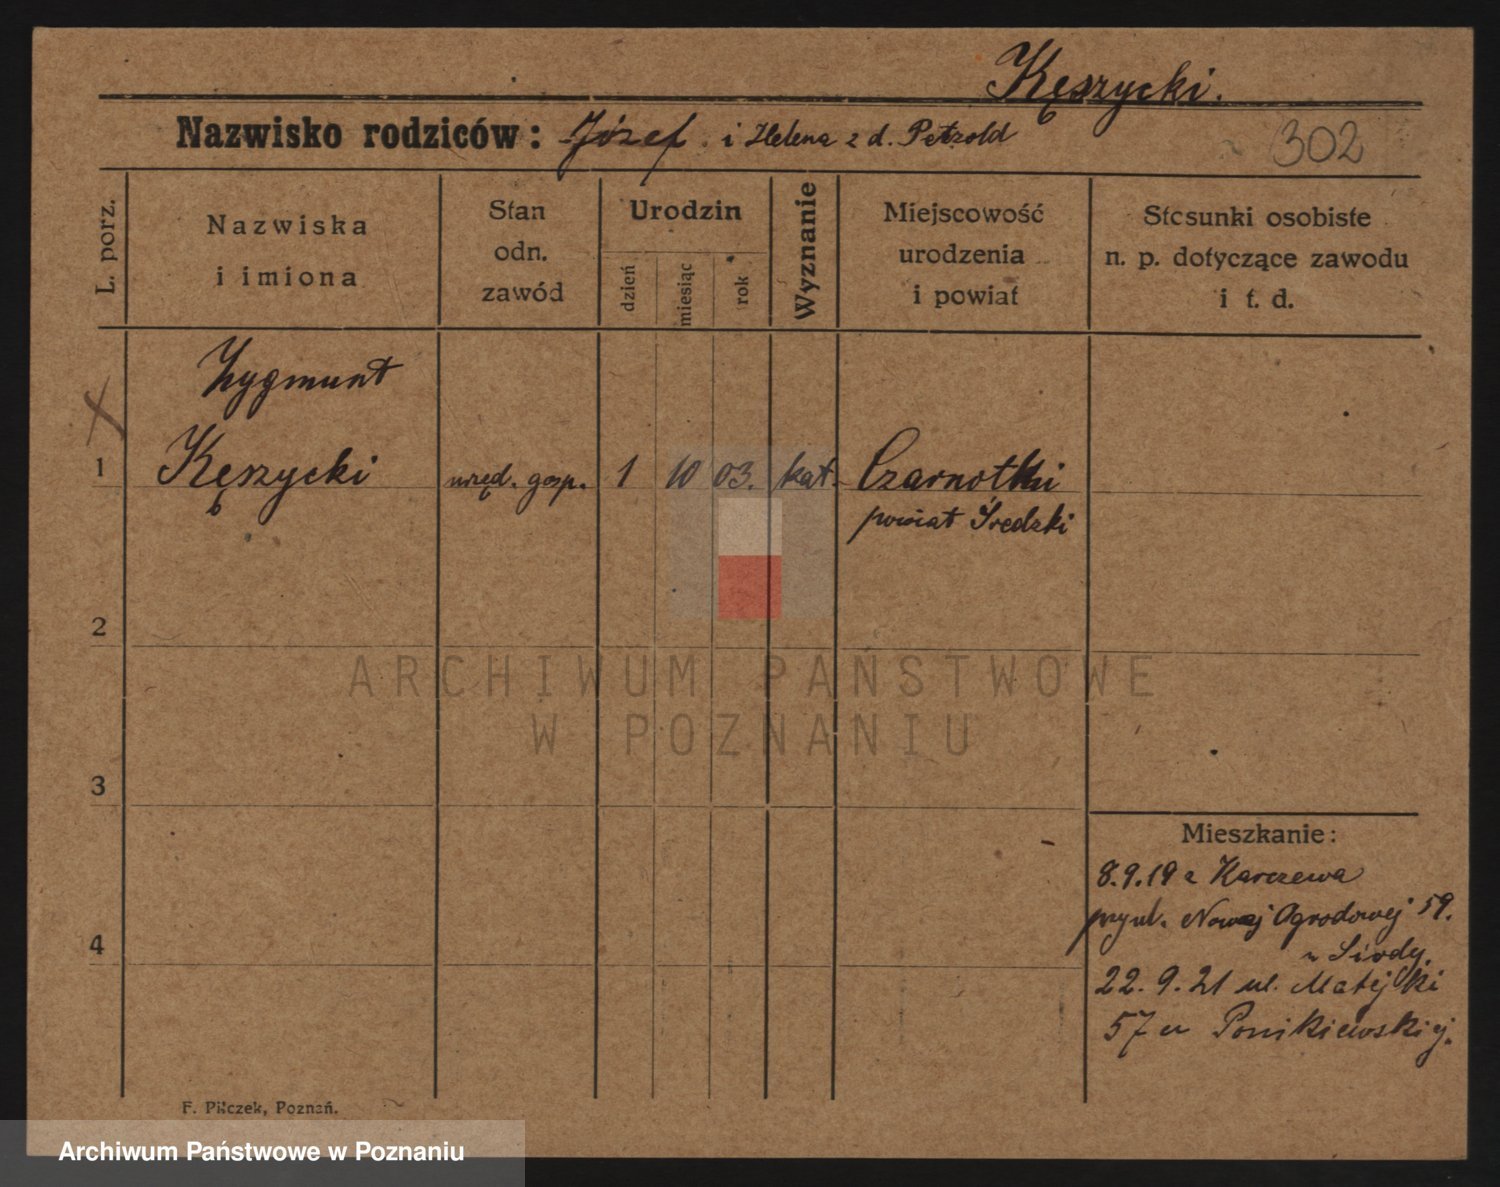 Kęszycki.
Nazwisko rodziców: Józef i Helena z d. Petzold
302
L. porz.
Nazwiska
i imiona
Stan
odn.
zawód
Urodzin
dzień
miesiąc
rok
Wyznanie
Miejscowość
urodzenia
i powiat
Stosunki osobiste
n. p. dotyczące zawodu
i t. d.
Zygmunt
1 Kęszycki urzęd. gosp. 1 10 03. kat. Czarnotki
powiat Średzki
2
ARCHIWUM PAŃSTWOWE
W POZNANIU
3
Mieszkanie:
8.9.19 z Karczewa
przy ul. Nowej Ogrodowej 59.
4
22.9.21 ul. Matejki
57 u Ponikiewskiej.
F. Pilczek, Poznań.
Archiwum Państwowe w Poznaniu